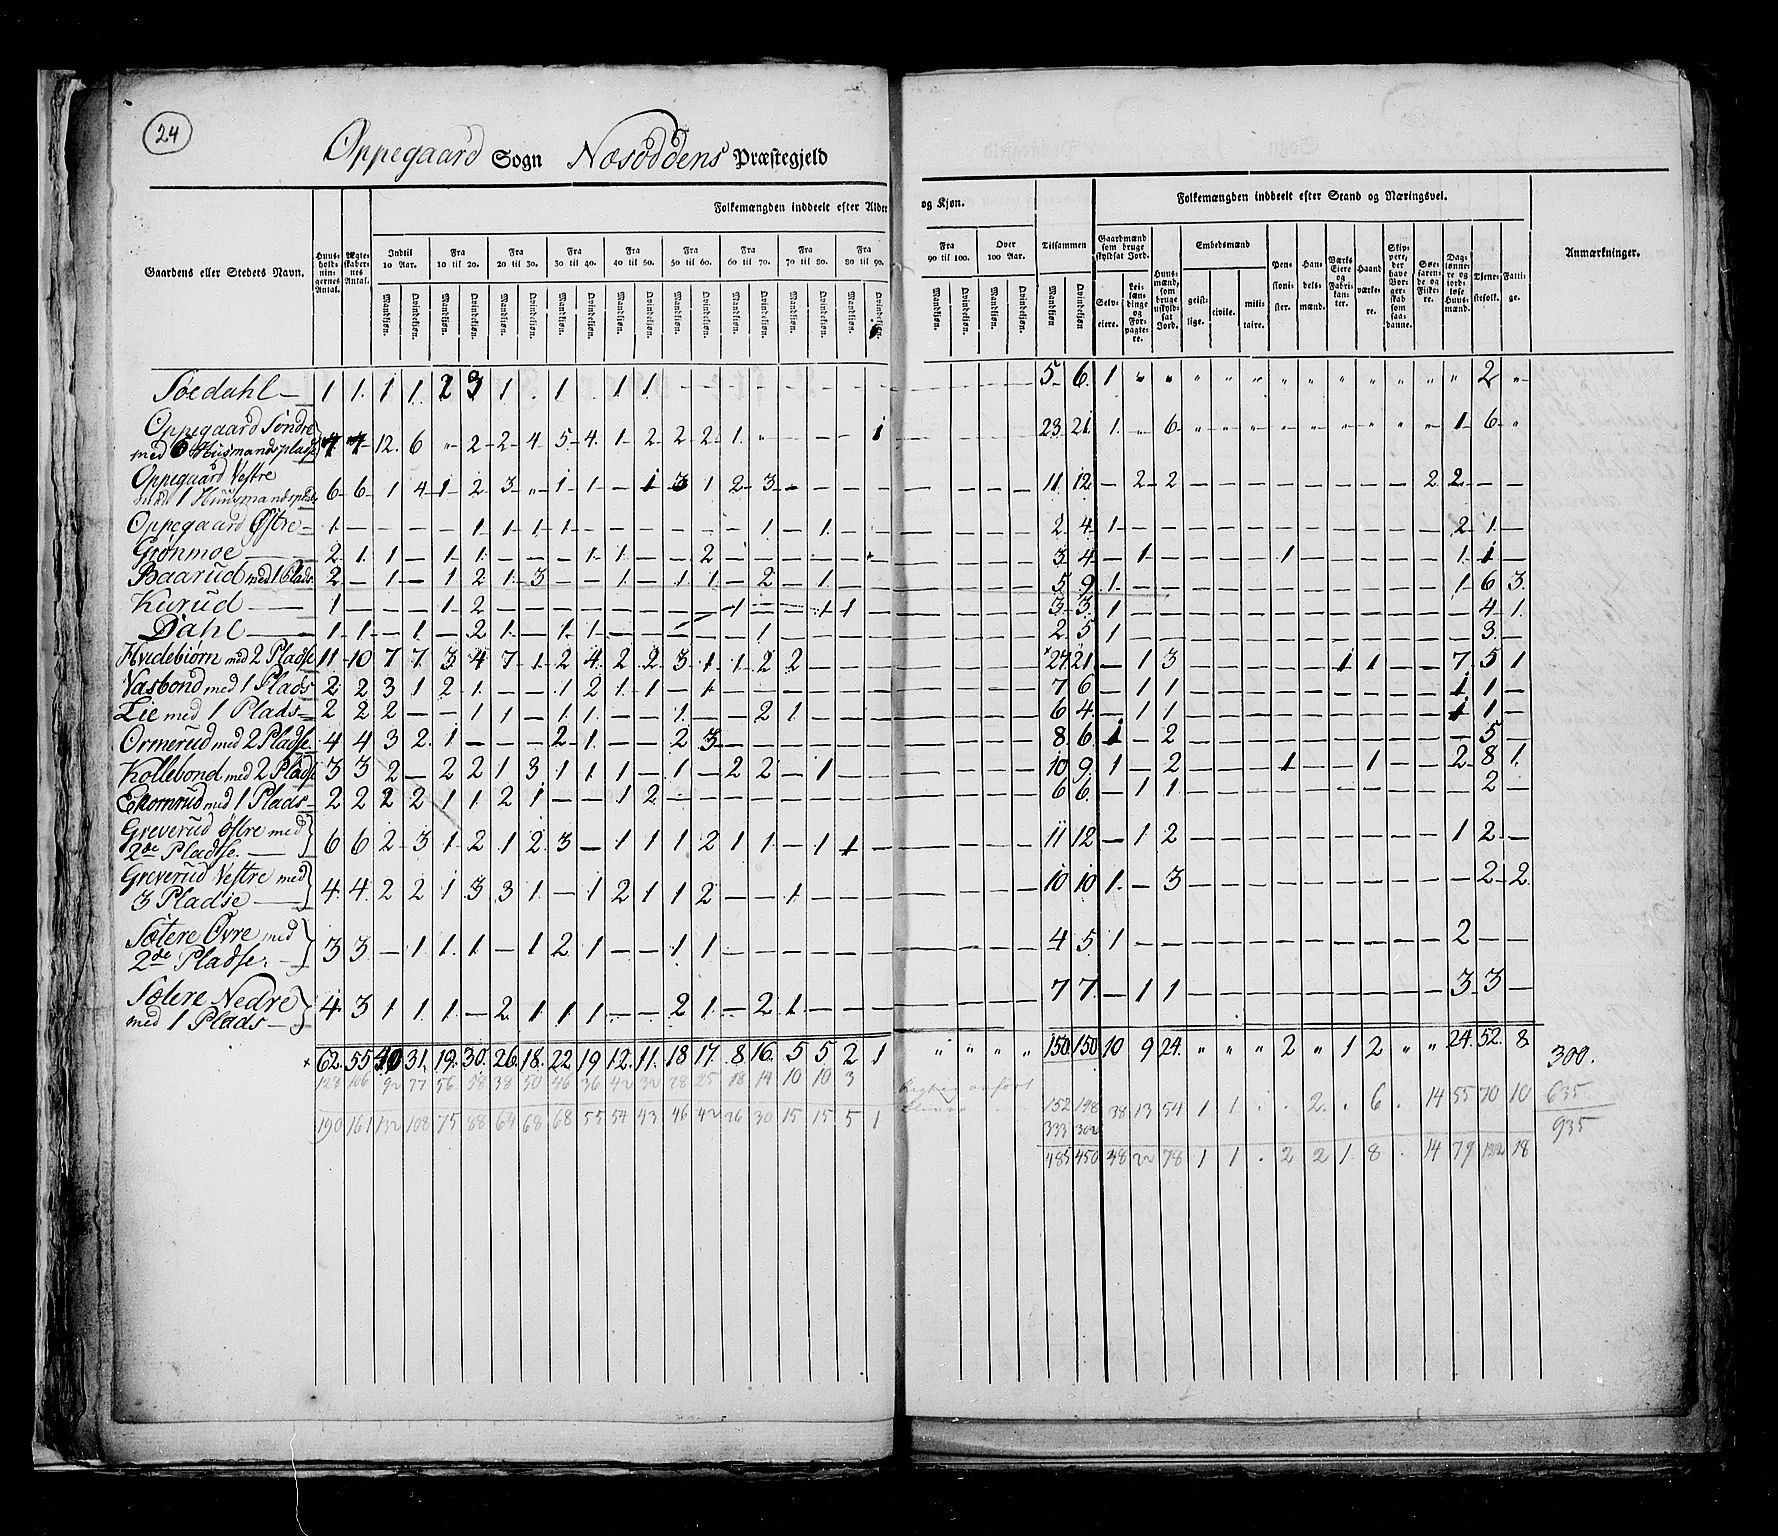 24
Oppegaard Sogn Næsoddens Præstegjeld
Gaardens eller Stedets Navn.
Huus-holdningernes Antal.
Ægteskabernes Antal.
Folkemængden inddeelt efter Alder og Kjøn.
Indtil 10 Aar. Fra 10 til 20. Fra 20 til 30. Fra 30 til 40. Fra 40 til 50. Fra 50 til 60. Fra 60 til 70. Fra 70 til 80. Fra 80 til 90. Fra 90 til 100. Over 100 Aar. Tilsammen
Mandkjøn. Qvindekjøn. Mandkjøn. Qvindekjøn. Mandkjøn. Qvindekjøn. Mandkjøn. Qvindekjøn. Mandkjøn. Qvindekjøn. Mandkjøn. Qvindekjøn. Mandkjøn. Qvindekjøn. Mandkjøn. Qvindekjøn. Mandkjøn. Qvindekjøn. Mandkjøn. Qvindekjøn. Mandkjøn. Qvindekjøn. Mandkjøn Qvindekjøn
Folkemængden inddeelt efter Stand og Næringsvei.
Gaardmænd som bruge skyldsat Jord.
Selv-eiere.
Leilændinge og Forpagtere.
Huusmænd, som bruge uskyldsat Jord.
Embedsmænd
geistlige. civile. militaire.
Pensionister.
Handelsmænd.
Værks Eiere og Fabrikanter.
Haandværkere.
Skippere, der have Borgerskab som saadanne.
Søefarende og Fiskere.
Daglønnere og jordløse Huusmænd.
Tjenestefolk.
Fattige.
Anmærkninger.
Søedahl 1 1. 1 1. 2 3 1 . 1 . 1 1 — — — — — — — — — — 5 6. 1 „ „ „ „ „ „ „ „ „ „ „ „ 2 „
Oppegaard Søndre
med 6 Huusmandspladse 7 7 12. 6 „ 2 2 4 5 4. 1 2 2 2 1. „ — — — 1 — — — — 23. 21. 1. „ 6 „ „ „ „ „ „ „ „ „ 1 6 „
Oppegaard Vestre
med 1 Huusmandsplads 6 6 1 4 1 2 3 „ 1 1 — 1 3 1 2 3 — — — — — — — — 11 12 — 2 2 — — — — — — — — 2 2 — —
Oppegaard Østre 1 — — — — 1 1 1 1 — — — — — — 1 — 1. — — — — — — 2 4 1 — — — — — — — — — — — 2 1 —
Grønmoe 2 1. 1 — 1 1. — — — 1 1. — — 2 — — — — — — — — — — 3 4 — 1 — — — — 1 — — — — — 1. 1 —
Baarud med 1 Plads 2 — 1 — 1 2 1 3 — — 1 — 1. 1. — 2 — 1. — — — — — — 5 9. 1. — — — — — — — — — — — 1 6 3.
Kurud 1 — — — 1 2 — — — — — — — — 1 — — 1 1 — — — — — 3 3. 1 — — — — — — — — — — — — 4 1.
Dahl 1 1 — 1. — 2 1. — 1. 1. — — — — — 1 — — — — — — — — 2 5 1 — — — — — — — — — — — — 3 —
Hvidebiørn med 2 Pladse 11 10 7 7. 3 4 7 1. 2 4. 2 2. 3 1. 1. 2 2 — — — — — — — 24 21. — 1 3 — — — — — 1 1 — — 7 5 1
med 1 Plads 2 2 3 1 2 1. — — 1 2 1. 1 — 1. — — — — — — — — — — 7 6 — 1 1 — — — — — — — — — 1 1 —
Lie med 1 Plads 2 2 2 — — 1 1 — 1 1. — — 1. — — 2 1 — — — — — — — 6 4 — 1 1 — — — — — — — — — 1 1 —
Ormerud med 2 Pladse 4 4 3 2. 1 — — — 2 1. — — 2 3 — — — — — — — — — — 8 6. 1 — 2 — — — — — — — — — — 5 —
Kollebond med 2 Pladse 3 3 2 — 2 2 1 3 1 1 1 — 1 — 2 2 — 1 — — — — — — 10 9. 1 — 2 — — — 1 — — 1 — — 2 8 1.
Ekornrud med 1 Plads 2 2 2 2 1 1. 2 1 — — 1 2 — — — — — — — — — — — — 6 6 — 1 1 — — — — — — — — — — 2 —
Greverud Østre med
2de Pladse. 6 6 2 3 1. 2 1 2. 3 — 1 1 1 2 1 1 — 1 1 — — — — — 11 12 — 1 2 — — — — — — — — — 1 2 —
Greverud Vestre med
3 Pladse 4. 4. 2 2 1 3 3 1. — 1 2 1 1 2 — — 1 — — — — — — — 10 10 1. — 3 — — — — — — — — — — 2 2.
Sætere Øvre med
2de Pladse. 3 3 — 1. 1. 1 — 1 2 1 — — 1 1. — — — — — — — — — — 4 5 1 — — — — — — — — — — — 2 — —
Sætere Nedre
med 1 Plads 4 3 1 1. 1. — 2. 1 1. 1. — — 2 1. — 2 1. — — — — — — — 7 7. — 1 1 — — — — — — — — — 3 3 —
62. 55 40 31. 19. 30. 26. 18. 22. 19 12. 11. 18 17. 8 16. 5 5 2 1 „ „ „ „ 150 150 10 9 24. „ „ „ 2 „ 1 2 „ „ 24. 52. 8. 300.
128 106 92 77 56 58 38 50 46 36 42 32 28 25 18 14 10 10 3 38 13 54 1 1 . . 2. . 6 . 14 55 70 10 635
190 161 132 108 75 88 64 68 68 55 54 43 46 42 26 30 15 15 5 1
333 302 935
485 450 48 22 78 1 1 . 2 2 1 8 . 14 79 18